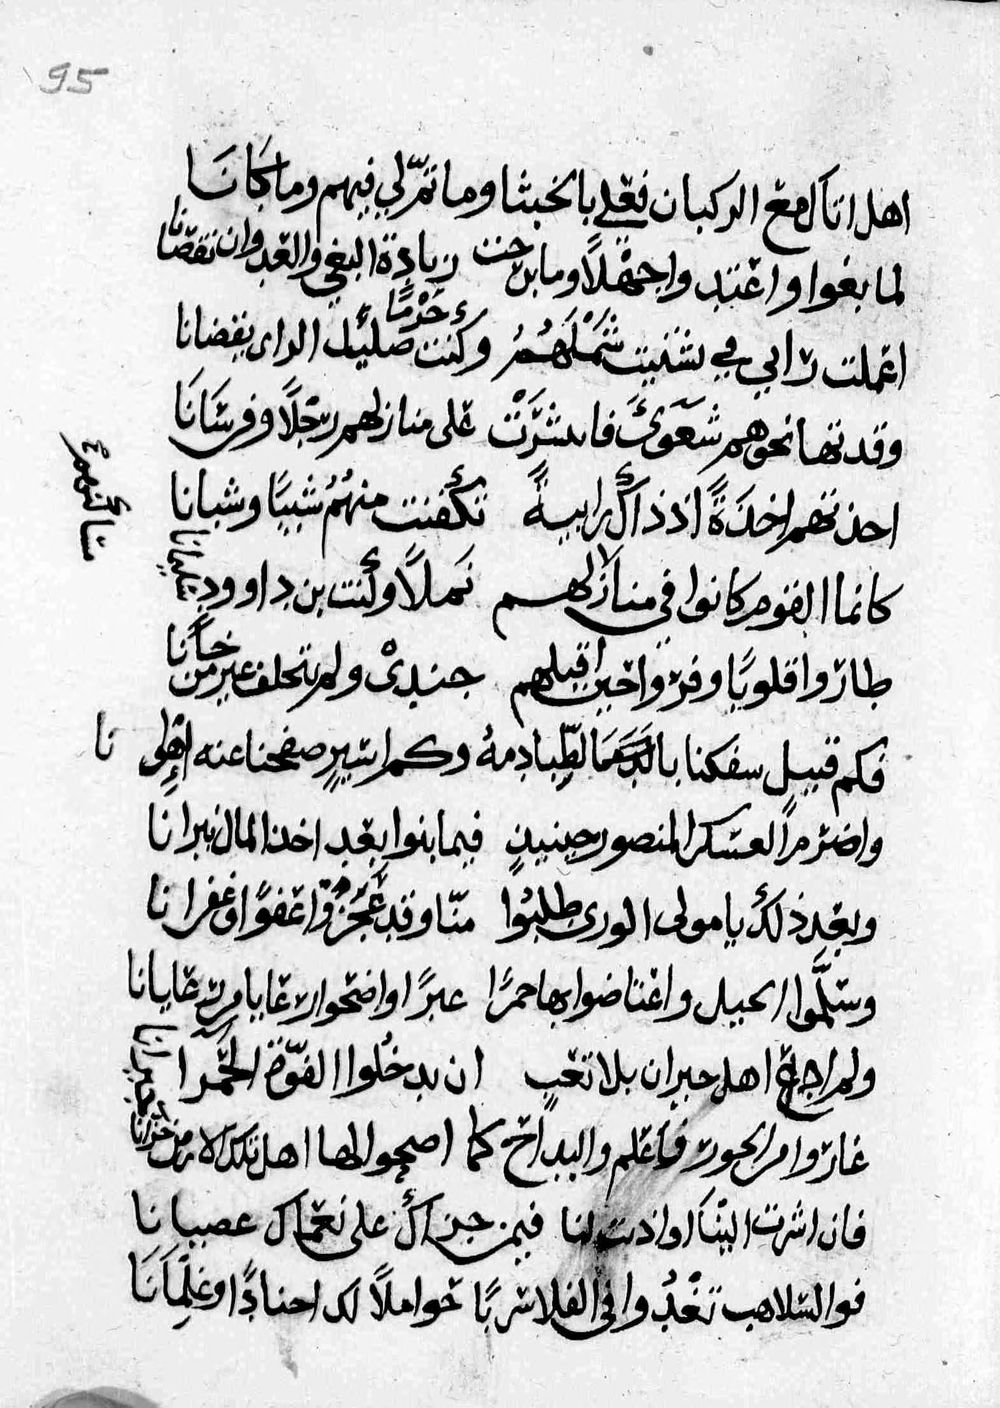 95
اهل اتاك مع الركبان فعلي بالخبثا وما تم لي فيهم وما كانا
لما بغوا واعتدوا جهلا وما برحت زيادة البغي والغدوان نقصانا
اعملت رايي في تشتيت شملهم وكنت خدما صليل الراي يقضانا
وقدتها نحوهم شعوى فانشرت على منازلهم رجلا وفرسانا
اخذتهم اخذة اذ ذاك رابية تكفنت منهم شيبا وشبانا
منا لحربهم
كانما القوم كانوا في منازلهم نملا وكنت بن داوود سليمانا
طاروا قلوبا وفروا حين اقبلهم جندي ولم يتخلف غير من خانا
فكم قتيل سفكنا بالظبا دمه وكم اسير صفحنا عنه اهوانا
واضرم العسكر المنصور حينيذ فيما بنوا بعد اخذ المال نيرانا
وبعد ذلك يا مولى الورى طلبوا منا وقد عجزوا عفوا وغفرانا
وسلموا الخيل واعتاضوا بها حمرا عبرا واضحوا رعايا من رعايانا
ولم اجد اهل حبران بلا تعب ان يدخلوا القوة الحمرا
غاروا من الجور فاعلم والبداح كما اصحوا لها اهل تلك الارض جيرانا
فان اشرت الينا او اذنت لنا فيمن جزاك على نعماك عصيانا
فوالسلاهب تغدوا في الفلا سربا حواملا لك اجنادا وغلمانا